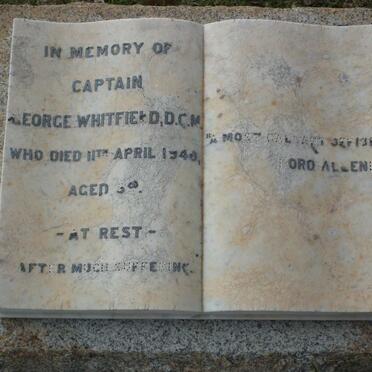 IN MEMORY OF
CAPTAIN
GEORGE WHITFIELD, D.C.M.
WHO DIED 11TH APRIL 1946,
AGED
- AT REST -
AFTER MUCH SUFFERING.
"A MOST GALLANT